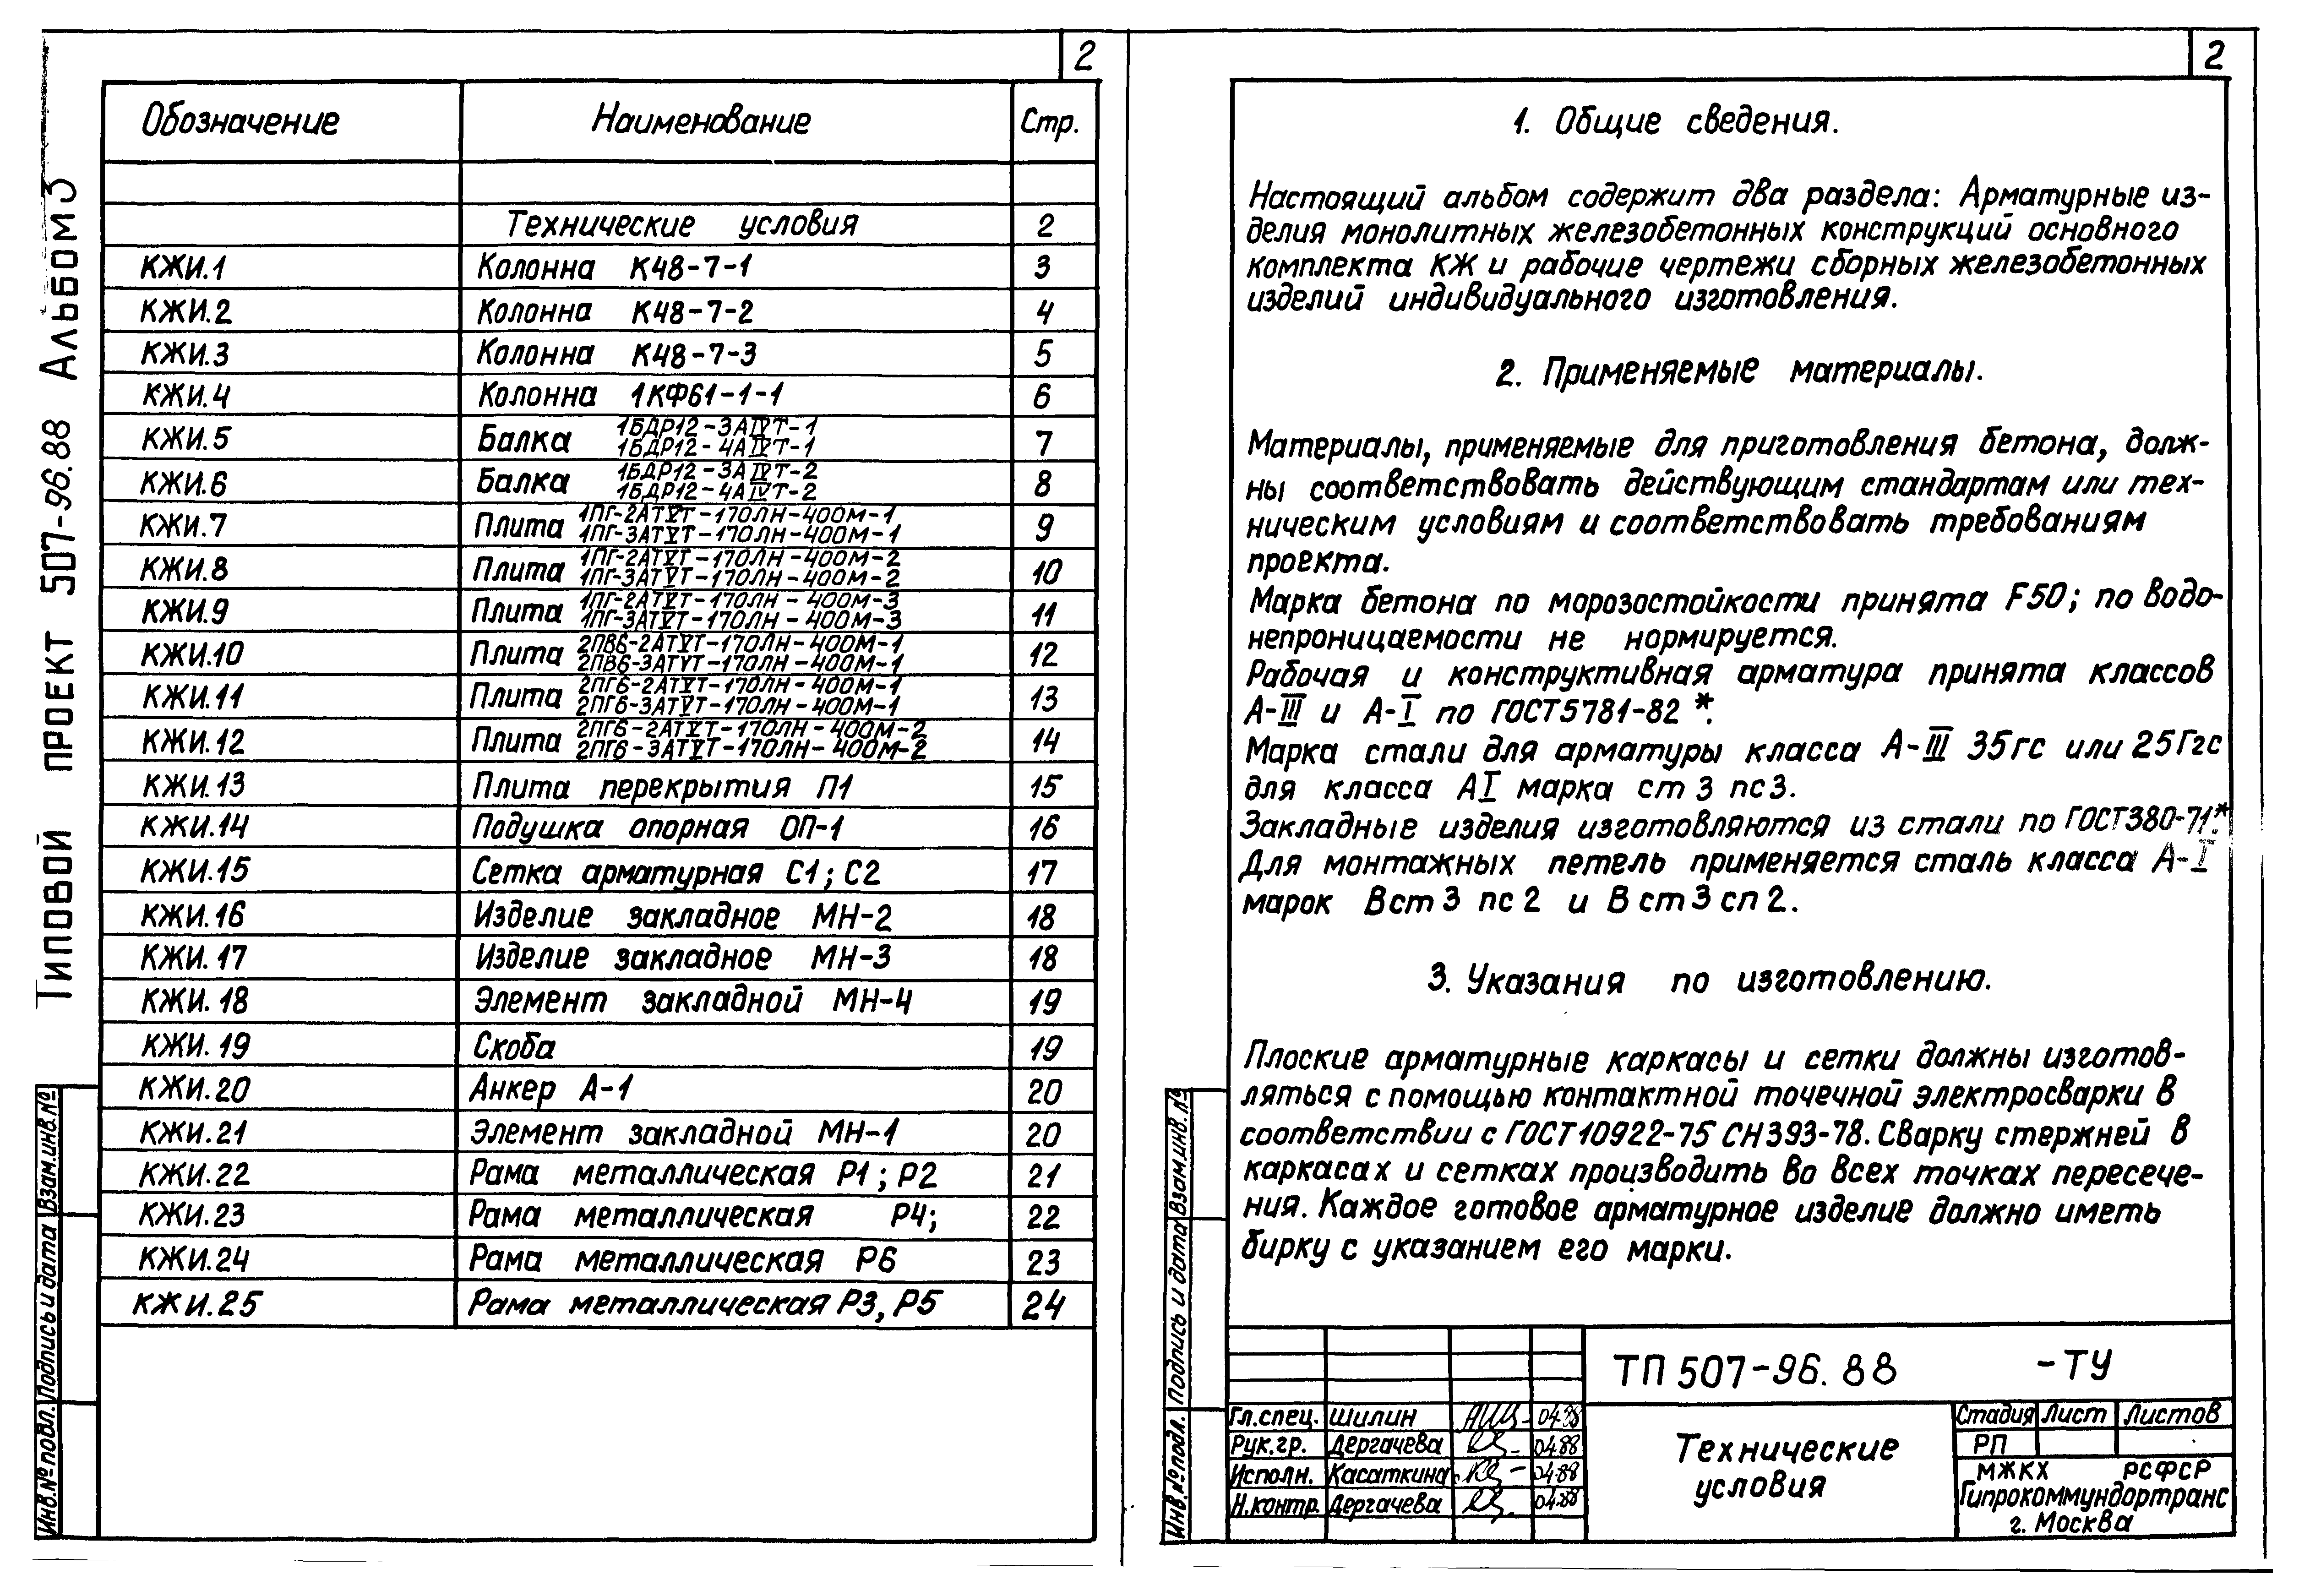 2
Типовой проект 507-96.88 Альбом 3
Обозначение Наименование Стр.
Технические условия 2
КЖИ.1 Колонна К48-7-1 3
КЖИ.2 Колонна К48-7-2 4
КЖИ.3 Колонна К48-7-3 5
КЖИ.4 Колонна 1КФ61-1-1 6
КЖИ.5 Балка 1БДР12-3АIVТ-1 7
1БДР12-4АIVТ-1
КЖИ.6 Балка 1БДР12-3АIVТ-2 8
1БДР12-4АIVТ-2
КЖИ.7 Плита 1ПГ-2АТVТ-170ЛН-400М-1 9
1ПГ-3АТVТ-170ЛН-400М-1
КЖИ.8 Плита 1ПГ-2АТVТ-170ЛН-400М-2 10
1ПГ-3АТVТ-170ЛН-400М-2
КЖИ.9 Плита 1ПГ-2АТVТ-170ЛН-400М-3 11
1ПГ-3АТVТ-170ЛН-400М-3
КЖИ.10 Плита 2ПВ6-2АТVТ-170ЛН-400М-1 12
2ПВ6-3АТVТ-170ЛН-400М-1
КЖИ.11 Плита 2ПГ6-2АТVТ-170ЛН-400М-1 13
2ПГ6-3АТVТ-170ЛН-400М-1
КЖИ.12 Плита 2ПГ6-2АТVТ-170ЛН-400М-2 14
2ПГ6-3АТVТ-170ЛН-400М-2
КЖИ.13 Плита перекрытия П1 15
КЖИ.14 Подушка опорная ОП-1 16
КЖИ.15 Сетка арматурная С1; С2 17
КЖИ.16 Изделие закладное МН-2 18
КЖИ.17 Изделие закладное МН-3 18
КЖИ.18 Элемент закладной МН-4 19
КЖИ.19 Скоба 19
КЖИ.20 Анкер А-1 20
КЖИ.21 Элемент закладной МН-1 20
КЖИ.22 Рама металлическая Р1; Р2 21
КЖИ.23 Рама металлическая Р4; 22
КЖИ.24 Рама металлическая Р6 23
КЖИ.25 Рама металлическая Р3, Р5 24
Инв.№подл. Подпись и дата Взам.инв.№
2
1. Общие сведения.
Настоящий альбом содержит два раздела: Арматурные из-
делия монолитных железобетонных конструкций основного
комплекта КЖ и рабочие чертежи сборных железобетонных
изделий индивидуального изготовления.
2. Применяемые материалы.
Материалы, применяемые для приготовления бетона, долж-
ны соответствовать действующим стандартам или тех-
ническим условиям и соответствовать требованиям
проекта.
Марка бетона по морозостойкости принята F50; по водо-
непроницаемости не нормируется.
Рабочая и конструктивная арматура принята классов
А-III и А-I по ГОСТ5781-82*.
Марка стали для арматуры класса А-III 35гс или 25Г2с
для класса АI марка ст 3 пс3.
Закладные изделия изготовляются из стали по ГОСТ380-71.*
Для монтажных петель применяется сталь класса А-I
марок Вст3 пс2 и Вст3сп2.
3. Указания по изготовлению.
Плоские арматурные каркасы и сетки должны изготов-
ляться с помощью контактной точечной электросварки в
соответствии с ГОСТ10922-75 СН393-78. Сварку стержней в
каркасах и сетках производить во всех точках пересече-
ния. Каждое готовое арматурное изделие должно иметь
бирку с указанием его марки.
Инв.№подл. Подпись и дата Взам.инв.№
ТП 507-96.88 -ТУ
Гл.спец. Шилин 04.88
Рук.гр. Дергачева 04.88
Исполн. Касаткина 04.88
Н.контр. Дергачева 04.88
Технические
условия
Стадия Лист Листов
РП
МЖКХ РСФСР
Гипрокоммундортранс
г. Москва